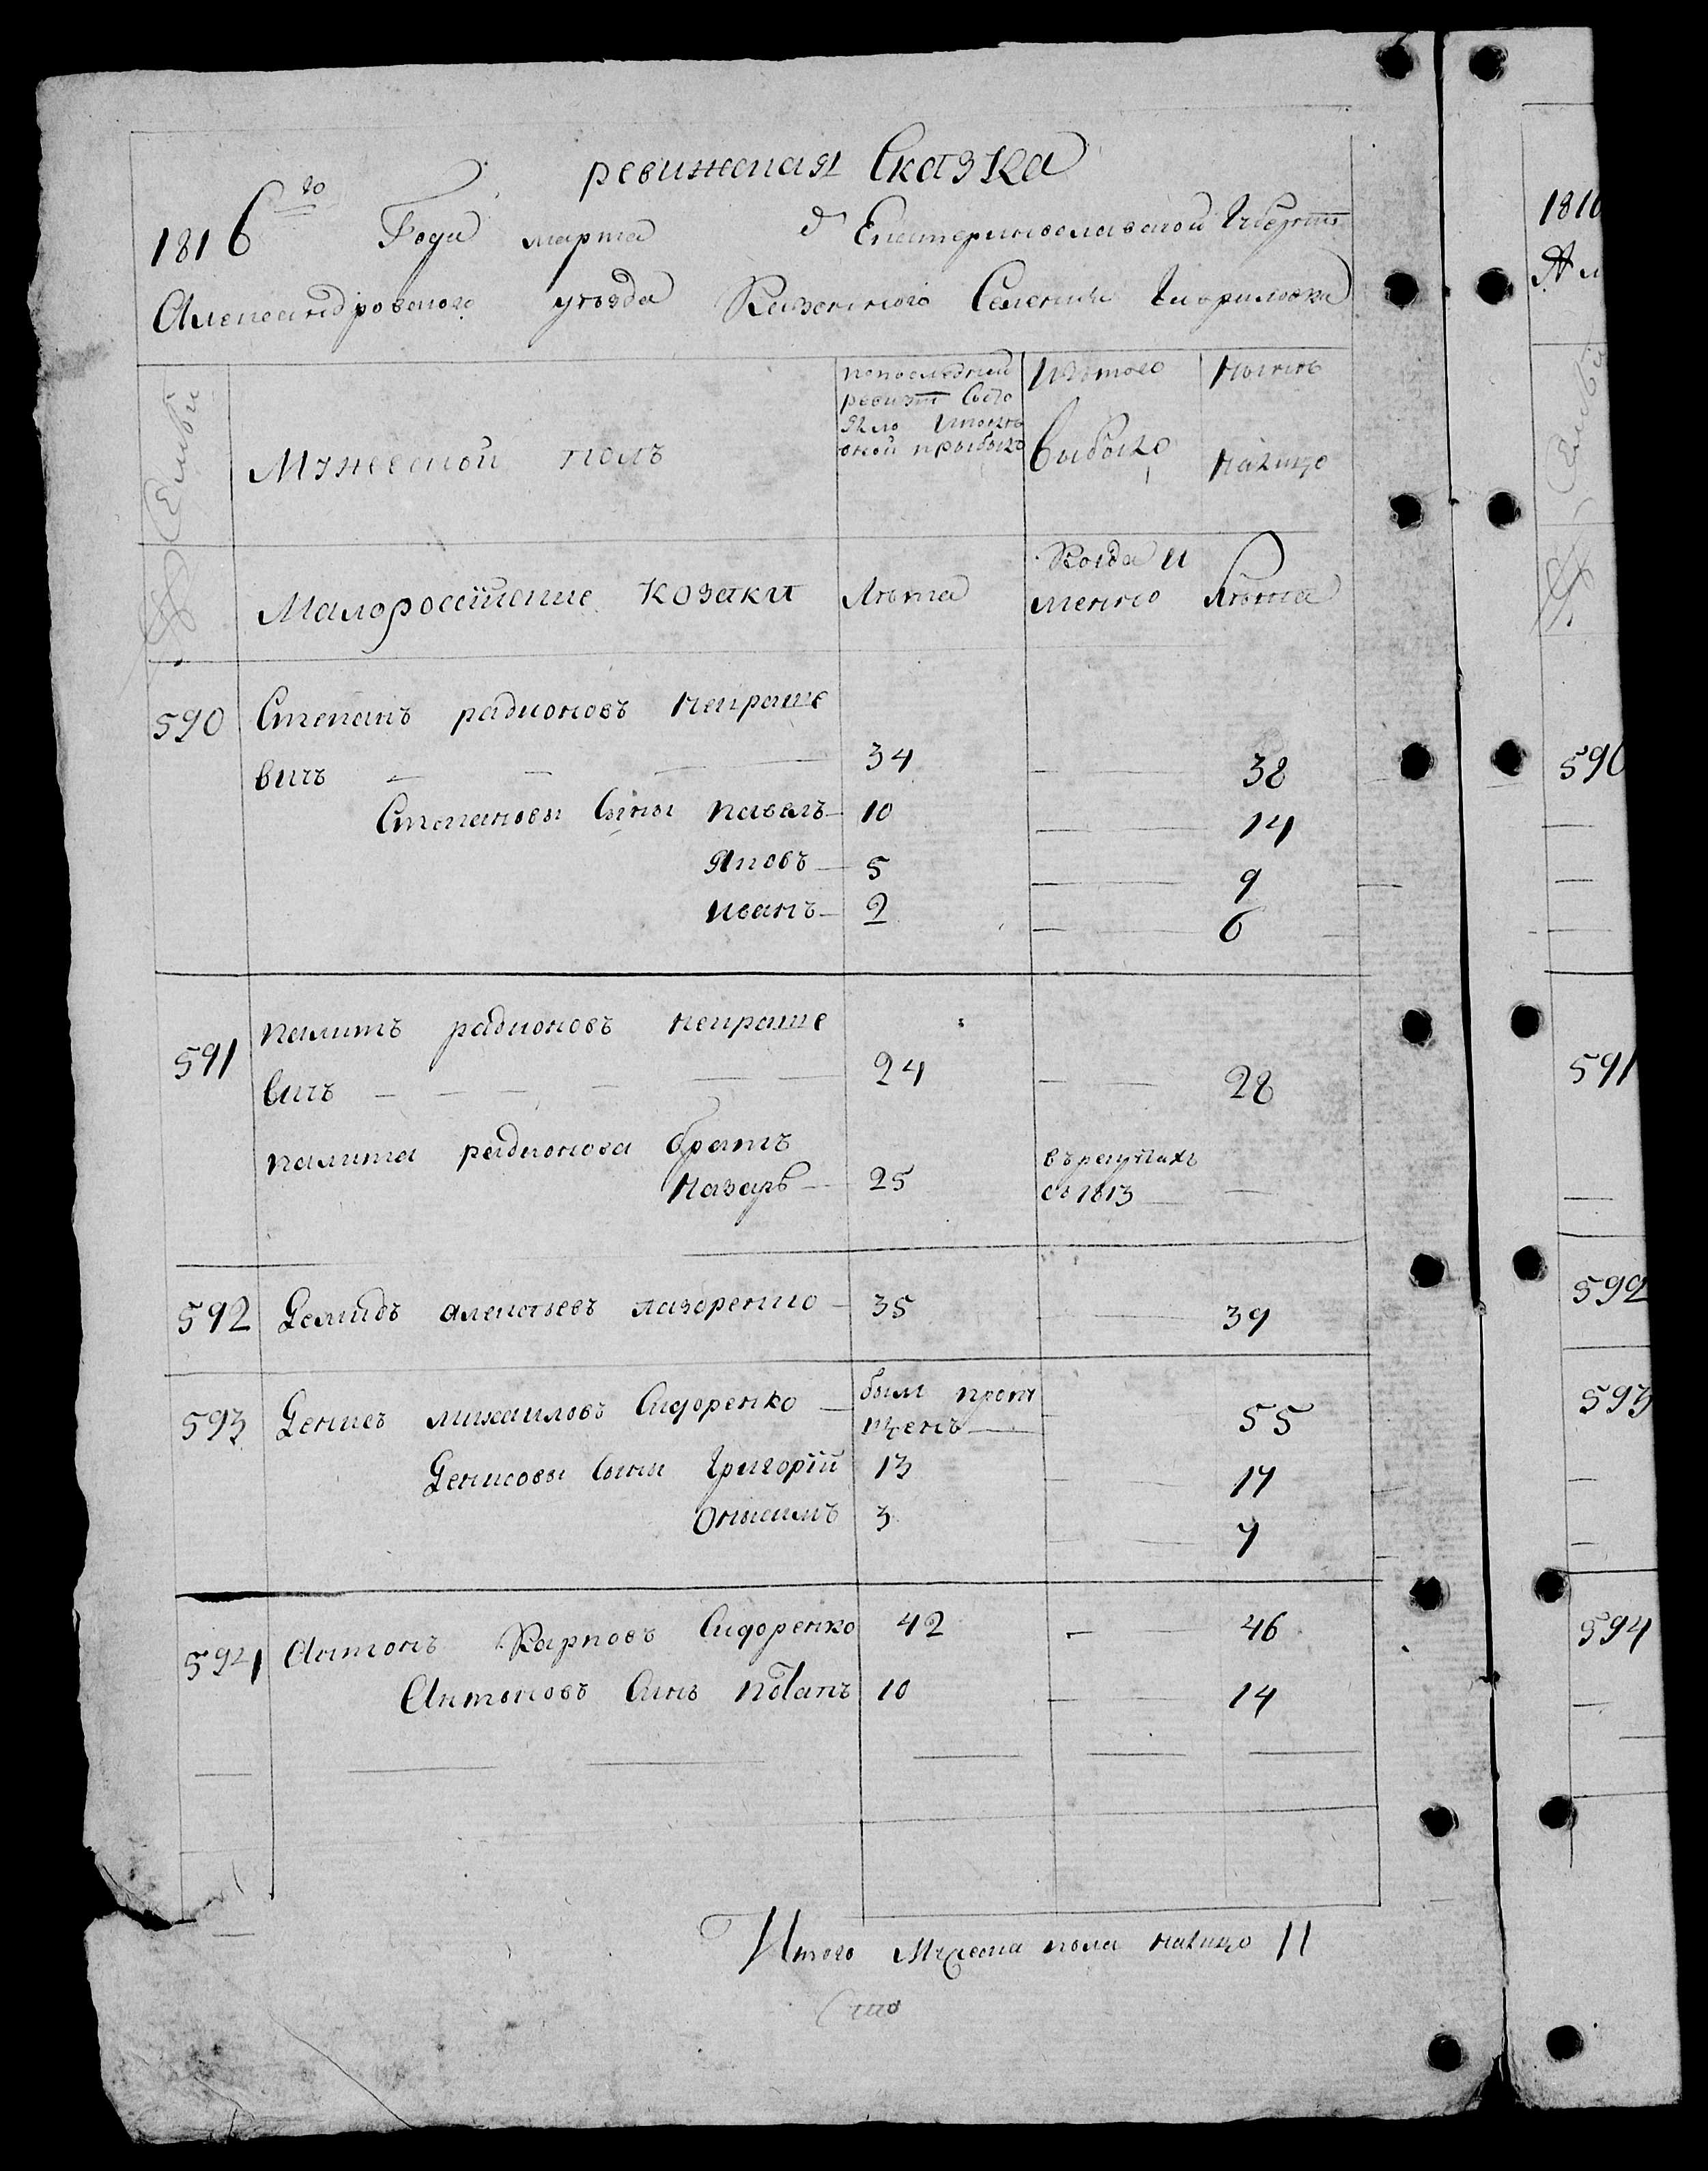 ревижская Сказка
1816го Года марта д Екатеринославской Губерніи
Александровского уѣзда Казенного Селения
Семьи
Мужеской полъ
попоследней ревизіи состо яло и после оной прибыло
Изъ того выбыло
Нынѣ налицо
№
Малоросейские козаки
Лѣта
Когда и менно
Лѣта
590 Степанъ радионовъ Непраше
вичъ — — — — 34 — — 38
Степановы Сины павелъ — 10 — — 14
Яковъ — 5 — — 9
иванъ — 2 — — 6
591 калитъ радионовъ непраше
вичъ — — — — — 24 — — 28
калита радионова братъ
Назаръ — 25 въ рекрутахъ съ 1813 —
592 Демидъ алексѣевъ лазоренко — 35 — 39
593 Денисъ михаиловъ Сидоренко — былъ пропу щенъ — — 55
Денисовы Сины Григорій 13 — 17
Онисимъ 3 — — 7
594 Антонъ Карповъ Сидоренко 42 — — 46
Антоновъ Синъ потапъ 10 — — 14
Итого Мужеска пола налицо 11
1816
590
591
592
593
594